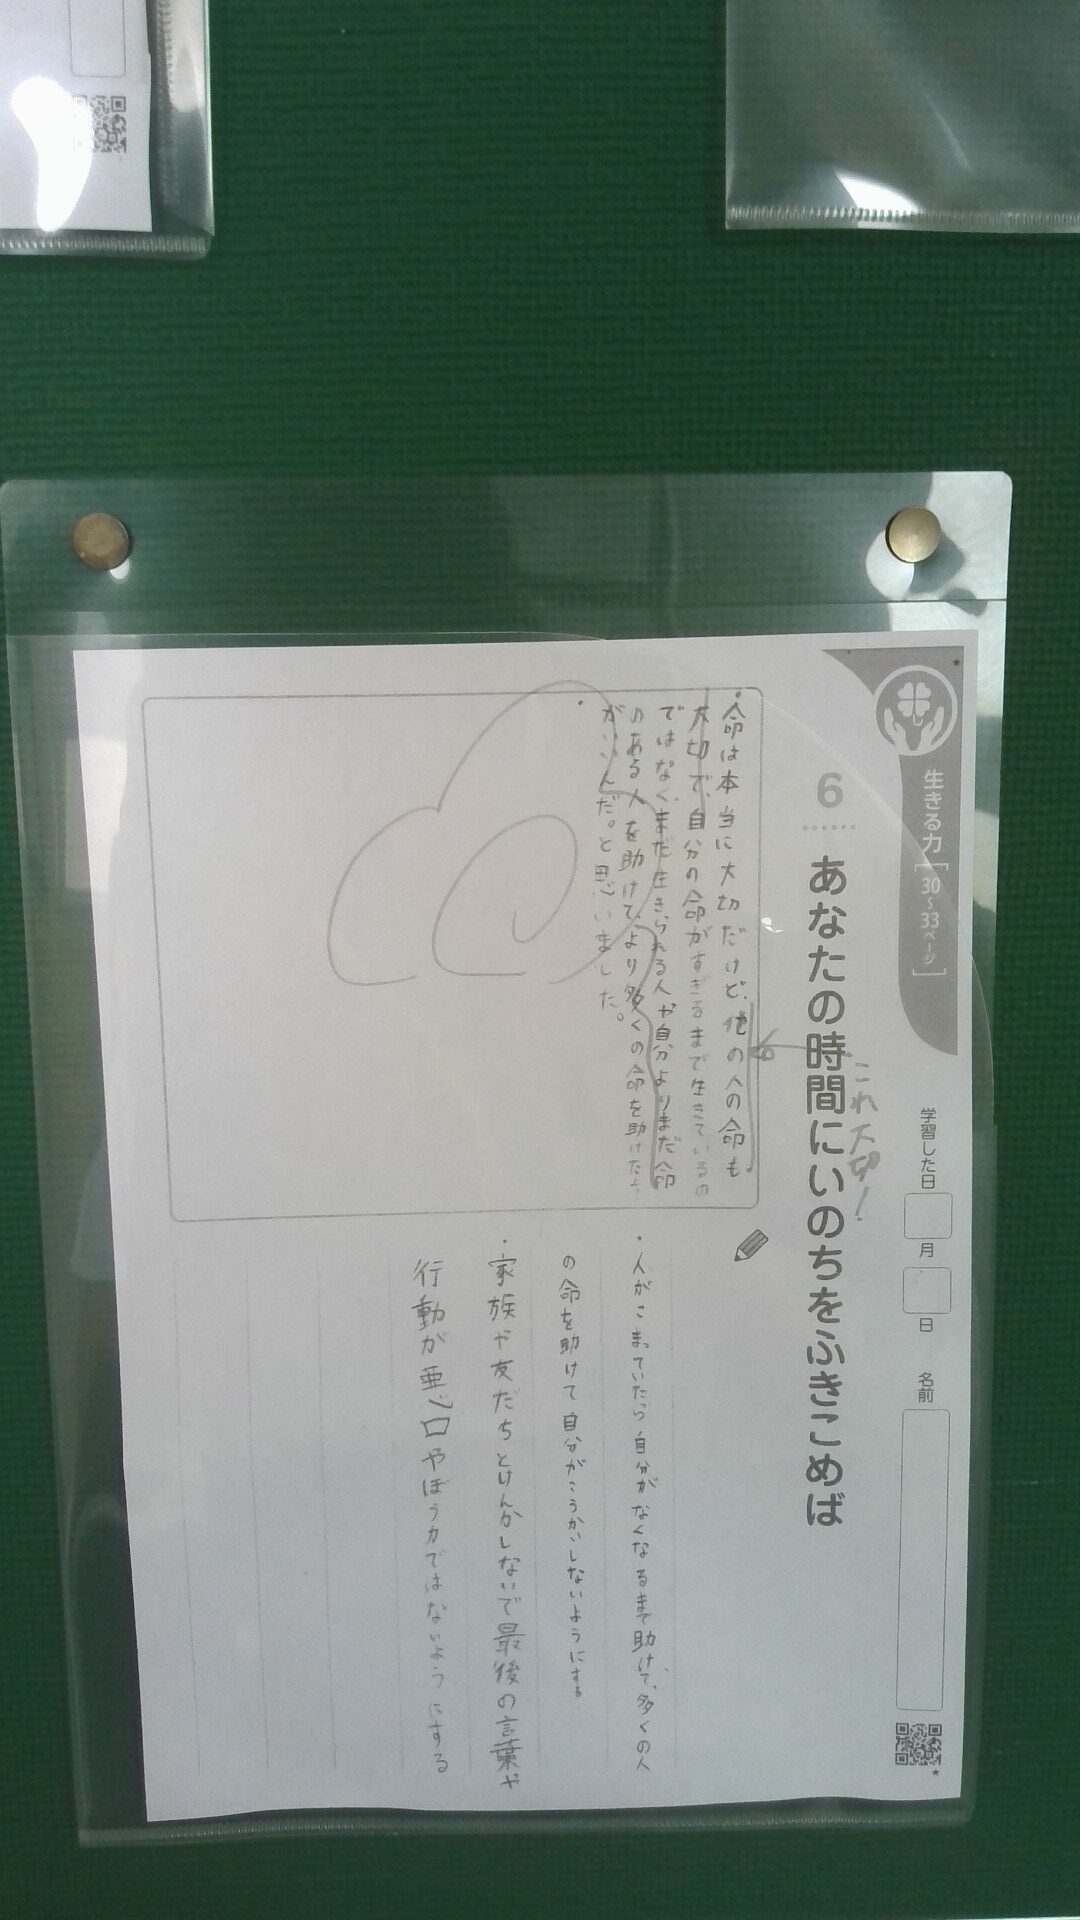 生きる力[30~33ページ]
学習した日 月 日 名前
6 あなたの時間にいのちをふきこめば
これ大切!
・命は本当に大切だけど、他の人の命も
大切で、自分の命がすぎるまで生きているの
ではなく、まだ生きられる人や自分よりまだ命
のある人を助けて、より多くの命を助けたら
がいいんだ。と思いました。
・
・人がこまっていたら自分がなくなるまで助けて、多くの人
の命を助けて自分がこうかいしないようにする
・家族や友だちとけんかしないで最後の言葉や
行動が悪口やぼう力ではないようにする